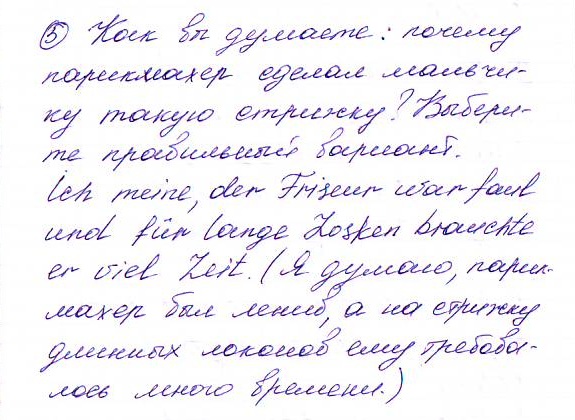 ⑤ Как вы думаете: почему
парикмахер сделал мальчи-
ку такую стрижку? Выбери-
те правильный вариант.
Ich meine, der Friseur war faul
und für lange Locken brauchte
er viel Zeit. (Я думаю, парик-
махер был ленив, а на стрижку
длинных локонов ему требова-
лось много времени.)